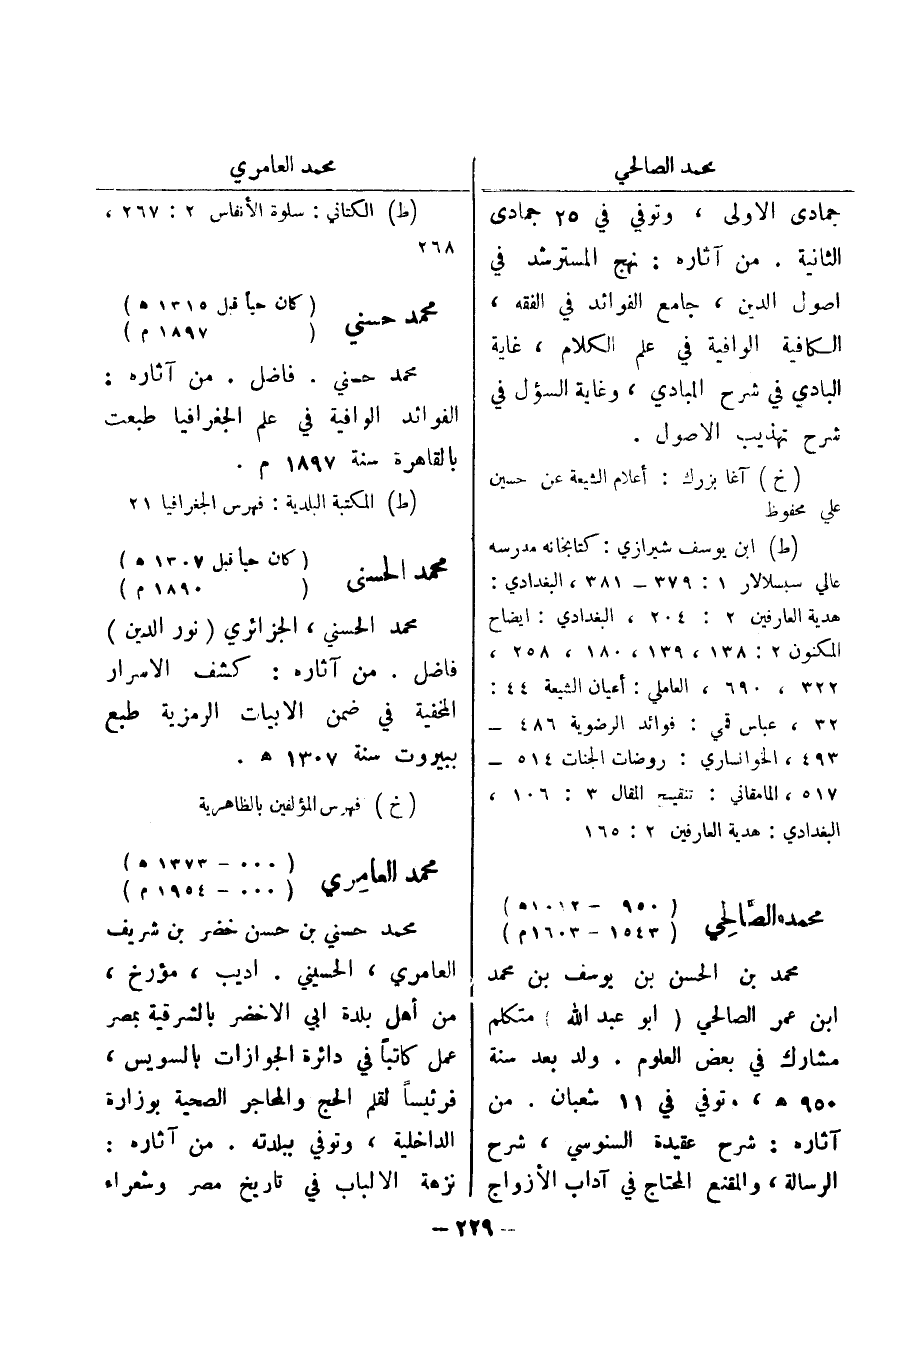 محمد الصالحي
جمادى الاولى ، وتوفي في ٢٥ جمادى
الثانية . من آثاره : نهج المسترشد في
اصول الدين ، جامع الفوائد في الفقه ،
الكافية الوافية في علم الكلام ، غاية
البادي في شرح المبادي ، وغاية السؤل في
شرح تهذيب الاصول .
( خ ) آغا بزرك : أعلام الشيعة عن حسين
علي محفوظ
(ط) ابن يوسف شيرازي : كتابخانه مدرسه
عالي سبسلالار ١ : ٣٧٩ – ٣٨١ ، البغدادي :
هدية العارفين ٢ : ٢٠٤ ، البغدادي : ايضاح
المكنون ٢ : ١٣٨ ، ١٣٩ ، ١٨٠ ، ٢٥٨ ،
٣٢٢ ، ٦٩٠ ، العاملي : أعيان الشيعة ٤٤ :
٣٢ ، عباس قمي : فوائد الرضوية ٤٨٦ –
٤٩٣ ، الخوانساري : روضات الجنات ٥١٤ –
٥١٧ ، المامقاني : تنقيح المقال ٣ : ١٠٦ ،
البغدادي : هدية العارفين ٢ : ١٦٥
محمد الصَّالحِي ( ٩٥٠ – ١٠١٢ ه )
( ١٥٤٣ – ١٦٠٣ م )
محمد بن الحسن بن يوسف بن محمد
ابن عمر الصالحي ( ابو عبد الله ) متكلم
مشارك في بعض العلوم . ولد بعد سنة
٩٥٠ ه ، وتوفي في ١١ شعبان . من
آثاره : شرح عقيدة السنوسي ، شرح
الرسالة ، والمقنع المحتاج في آداب الأزواج
محمد العامري
(ط) الكتاني : سلوة الأنفاس ٢ : ٢٦٧ ،
٢٦٨
محمد حسني ( كان حياً قبل ١٣١٥ ه )
( ١٨٩٧ م )
محمد حسني . فاضل . من آثاره :
الفوائد الوافية في علم الجغرافيا طبعت
بالقاهرة سنة ١٨٩٧ م .
(ط) المكتبة البلدية : فهرس الجغرافيا ٢١
محمد الحسني ( كان حياً قبل ١٣٠٧ ه )
( ١٨٩٠ م )
محمد الحسني ، الجزائري ( نور الدين )
فاضل . من آثاره : كشف الاسرار
المخفية في ضمن الابيات الرمزية طبع
ببيروت سنة ١٣٠٧ ه .
( خ ) فهرس المؤلفين بالظاهرية
محمد العامِري ( ٠٠٠ – ١٣٧٣ ه )
( ٠٠٠ – ١٩٥٤ م )
محمد حسني بن حسن خضر بن شريف
العامري ، الحسيني . اديب ، مؤرخ ،
من أهل بلدة ابي الاخضر بالشرقية بمصر
عمل كاتباً في دائرة الجوازات بالسويس ،
فرئيساً لقلم الحج والمحاجر الصحية بوزارة
الداخلية ، وتوفي ببلدته . من آثاره :
نزهة الالباب في تاريخ مصر وشعراء
– ٢٢٩ –